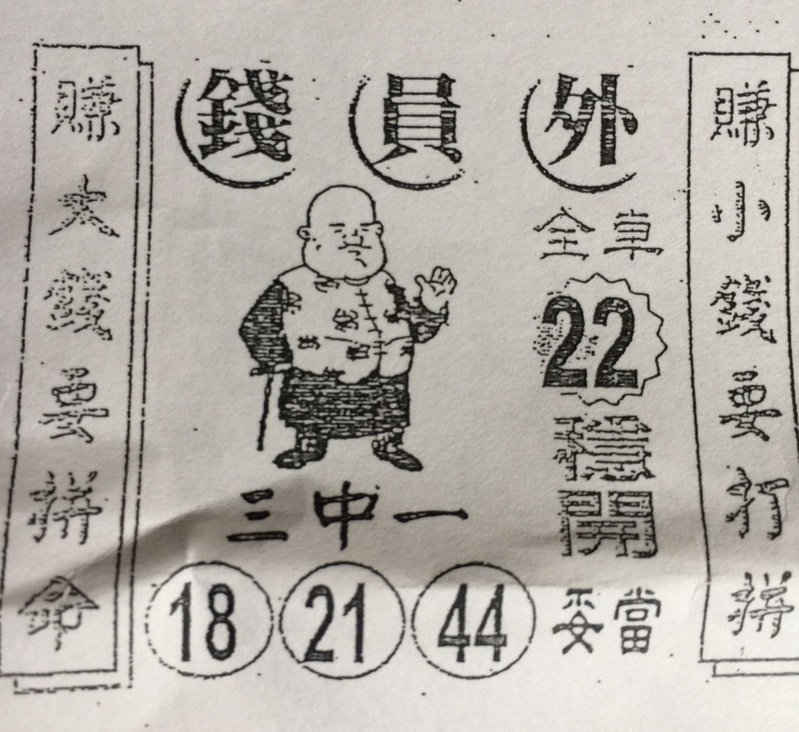 賺大錢要拼命
錢員外
三中一
18 21 44
全車
22
穩
開
妥當
賺小錢要打拼